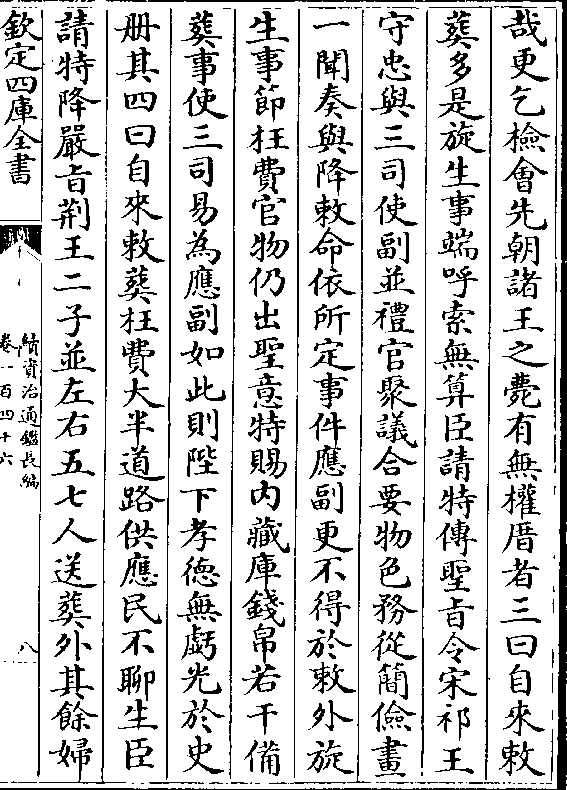 哉更乞檢會先朝諸王之薨有無權厝者三曰自來敕
葬多是旋生事端呼索無算臣請特傳聖旨令宋祁王
守忠與三司使副並禮官聚議合要物色務從簡儉畫
一聞奏與降敕命依所定事件應副更不得於敕外旋
生事節枉費官物仍出聖意特賜内藏庫錢帛若干備
葬事使三司易為應副如此則陛下孝德無虧光於史
册其四曰自來敕葬枉費大半道路供應民不聊生臣
請特降嚴旨荆王二子並左右五七人送葬外其餘婦
欽定四庫全書
續資治通鑑長編
卷一百四十六
八